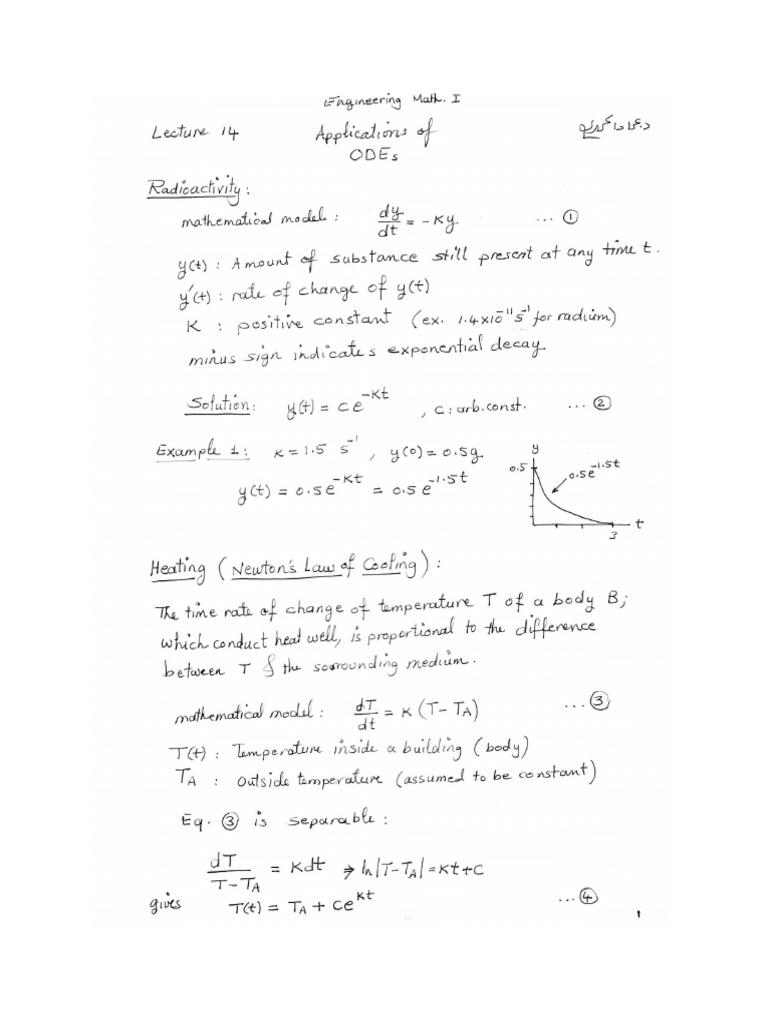 Engineering Math. I
Lecture 14 Applications of
ODEs
Radioactivity:
mathematical model: dy/dt = -Ky. ... ①
y(t): Amount of substance still present at any time t.
y'(t): rate of change of y(t)
K : positive constant (ex. 1.4×10⁻¹¹ s⁻¹ for radium)
minus sign indicates exponential decay.
Solution: y(t) = c e^-Kt , c: arb. const. ... ②
Example 1: K = 1.5 s⁻¹, y(0) = 0.5g.
y(t) = 0.5e^-Kt = 0.5 e^-1.5t
y
0.5
0.5e^-1.5t
t
3
Heating (Newton's Law of Cooling):
The time rate of change of temperature T of a body B;
which conduct heat well, is proportional to the difference
between T & the sorrounding medium.
mathematical model: dT/dt = K (T-TA) ... ③
T(t): Temperature inside a building (body)
TA : outside temperature (assumed to be constant)
Eq. ③ is separable:
dT/T-TA = Kdt ⇒ ln|T-TA| = Kt+C
gives T(t) = TA + Ce^Kt ... ④
1